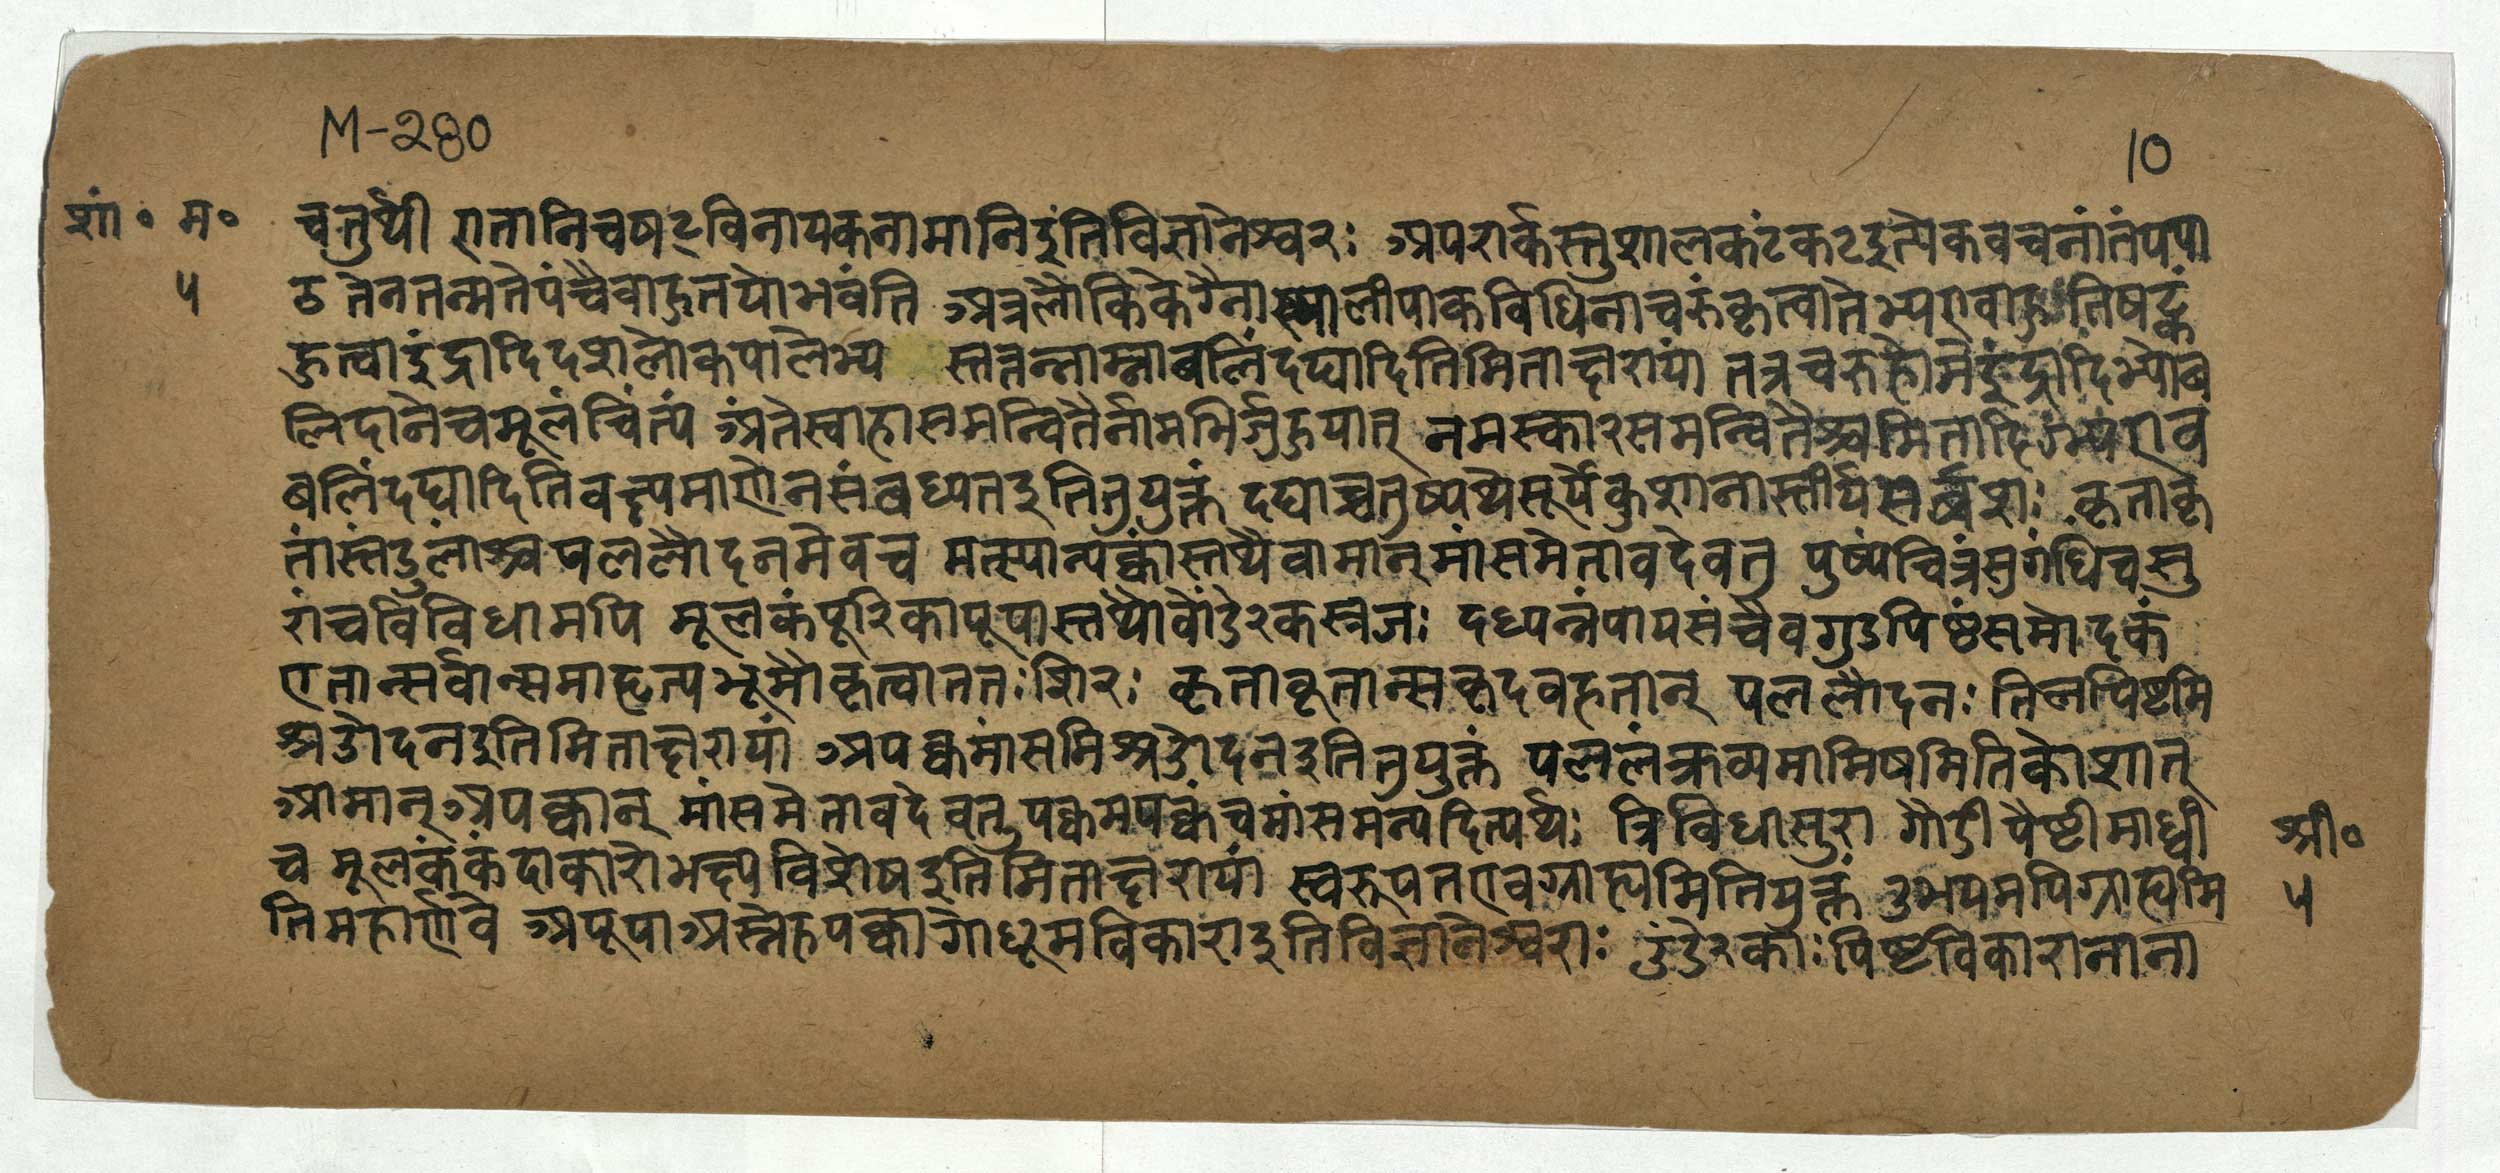 M-280
10
शां॰ म॰
५
चतुर्थ्या एतानिचषट्विनायकनामानिइतिविज्ञानेश्वरः अपरार्कस्तुशालकटंकटइत्येकवचनांतंपपा
ठ तेनतन्मतेपंचैवाहुतयोभवंति अत्रलौकिकेग्नौस्थालीपाकविधिनाचरुंकृत्वातेभ्यएवाहुतिषट्कं
हुत्वाइंद्रादिदशलोकपालेभ्य स्तत्तन्नाम्नाबलिंदद्यादितिमिताक्षरायां तत्रचरुहोमेइंद्रादिभ्योब
लिदानेचमूलंचिंत्यं अंतेस्वाहासमन्वितैर्नामभिर्जुहुयात् नमस्कारसमन्वितैश्चमितादिभ्यएव
बलिंदद्यादितिवक्ष्यमाणेनसंबध्यतइतितुयुक्तं दद्याच्चतुष्पथेसूर्पेकुशानास्तीर्यसर्वशः कृताकृ
तांस्तंडुलांश्चपललौदनमेवच मत्स्यान्पक्कांस्तथैवामान्मांसमेतावदेवतु पुष्पंचित्रंसुगंधिंचसु
रांचविविधामपि मूलकंपूरिकापूपास्तथैवोंडेरकस्रजः दध्यन्नंपायसंचैवगुडपिष्ठंसमोदकं
एतान्सर्वान्समाहृत्यभूमौकृत्वाततःशिरः कृताकृतान्सकृदवहतान् पललौदनः तिलपिष्टमि
श्रओदनइतिमिताक्षरायां अपक्कमांसमिश्रओदनइतितुयुक्तं पललंक्रव्यमामिषमितिकोशात्
आमान्अपक्कान् मांसमेतावदेवतुपक्कमपक्कंचमांसमन्यदित्यर्थः त्रिविधासुरा गौडीपैष्टीमाध्वी
च मूलकंकंदाकारोभक्ष्यविशेषइतिमिताक्षरायां स्वरूपतएवग्राह्यमितियुक्तं उभयमपिग्राह्यमि
तिमहार्णवे अपूपाअस्नेहपक्कागोधूमविकाराइतिविज्ञानेश्वराः उंडेरकाः पिष्टविकारानाना
श्री॰
५